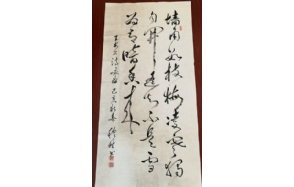 墙角数枝梅凌寒独
自开遥知不是雪
为有暗香来
王安石诗梅花 己亥新春